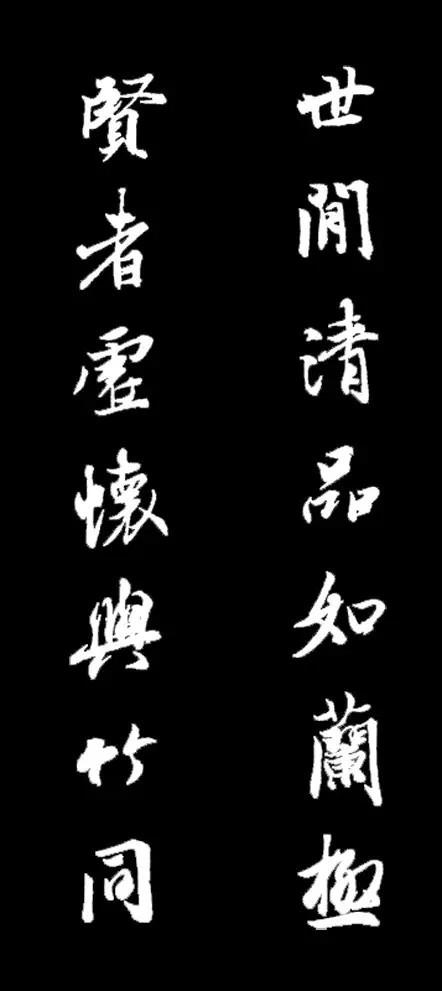 世閒清品如蘭極
賢者虛懷與竹同